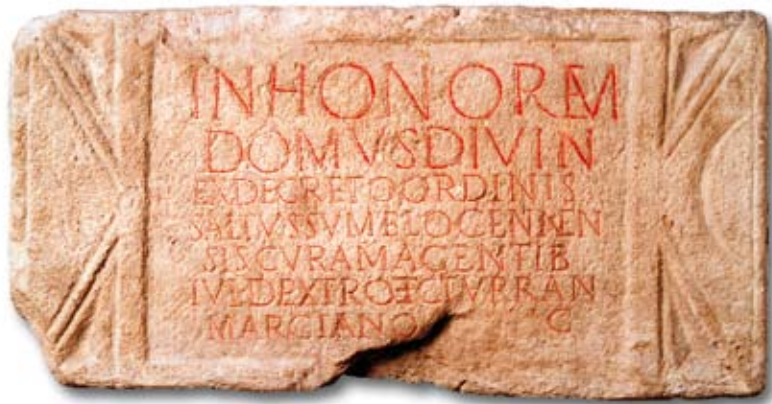 INHONOREM
DOMVSDIVIN
EXDECRETOORDINIS
SALTVSSVMELOCENNEN
SISCVRAMAGENTIB
IVLDEXTROETCTVRRAN
MARCIANO C